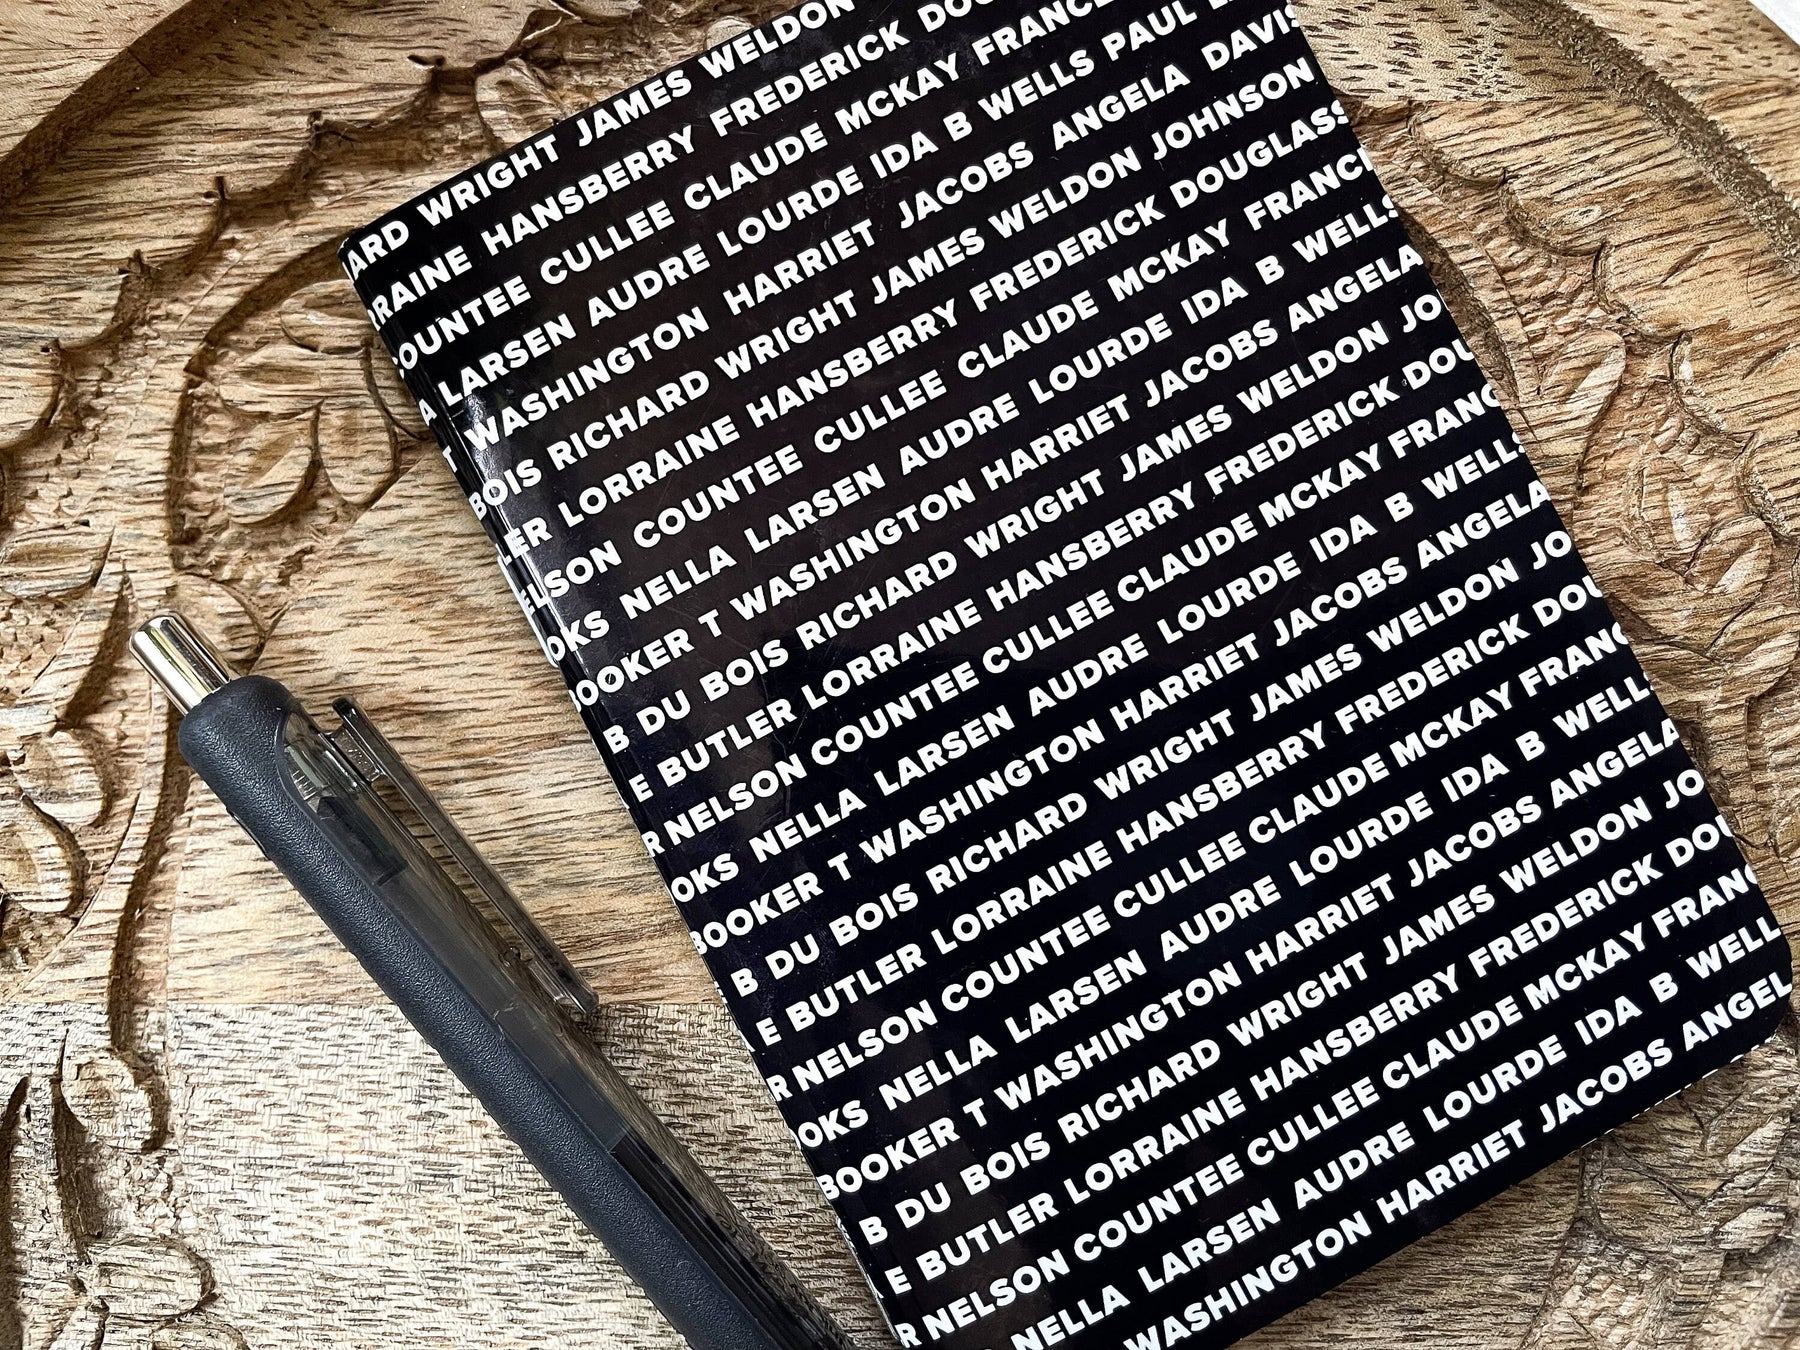 ARD WRIGHT JAMES WELDON
RAINE HANSBERRY FREDERICK DOU
COUNTEE CULLEE CLAUDE MCKAY FRANCE
A LARSEN AUDRE LOURDE IDA B WELLS PAUL
T WASHINGTON HARRIET JACOBS ANGELA DAVIS
BOIS RICHARD WRIGHT JAMES WELDON JOHNSON
LER LORRAINE HANSBERRY FREDERICK DOUGLASS
ELSON COUNTEE CULLEE CLAUDE MCKAY FRANC
OKS NELLA LARSEN AUDRE LOURDE IDA B WELLS
BOOKER T WASHINGTON HARRIET JACOBS ANGELA
B DU BOIS RICHARD WRIGHT JAMES WELDON JO
E BUTLER LORRAINE HANSBERRY FREDERICK DOU
R NELSON COUNTEE CULLEE CLAUDE MCKAY FRANC
OKS NELLA LARSEN AUDRE LOURDE IDA B WELLS
BOOKER T WASHINGTON HARRIET JACOBS ANGELA
B DU BOIS RICHARD WRIGHT JAMES WELDON JO
E BUTLER LORRAINE HANSBERRY FREDERICK DOU
R NELSON COUNTEE CULLEE CLAUDE MCKAY FRANC
OKS NELLA LARSEN AUDRE LOURDE IDA B WELLS
BOOKER T WASHINGTON HARRIET JACOBS ANGELA
B DU BOIS RICHARD WRIGHT JAMES WELDON JO
E BUTLER LORRAINE HANSBERRY FREDERICK DOU
R NELSON COUNTEE CULLEE CLAUDE MCKAY FRANC
NELLA LARSEN AUDRE LOURDE IDA B WELL
WASHINGTON HARRIET JACOBS ANGEL